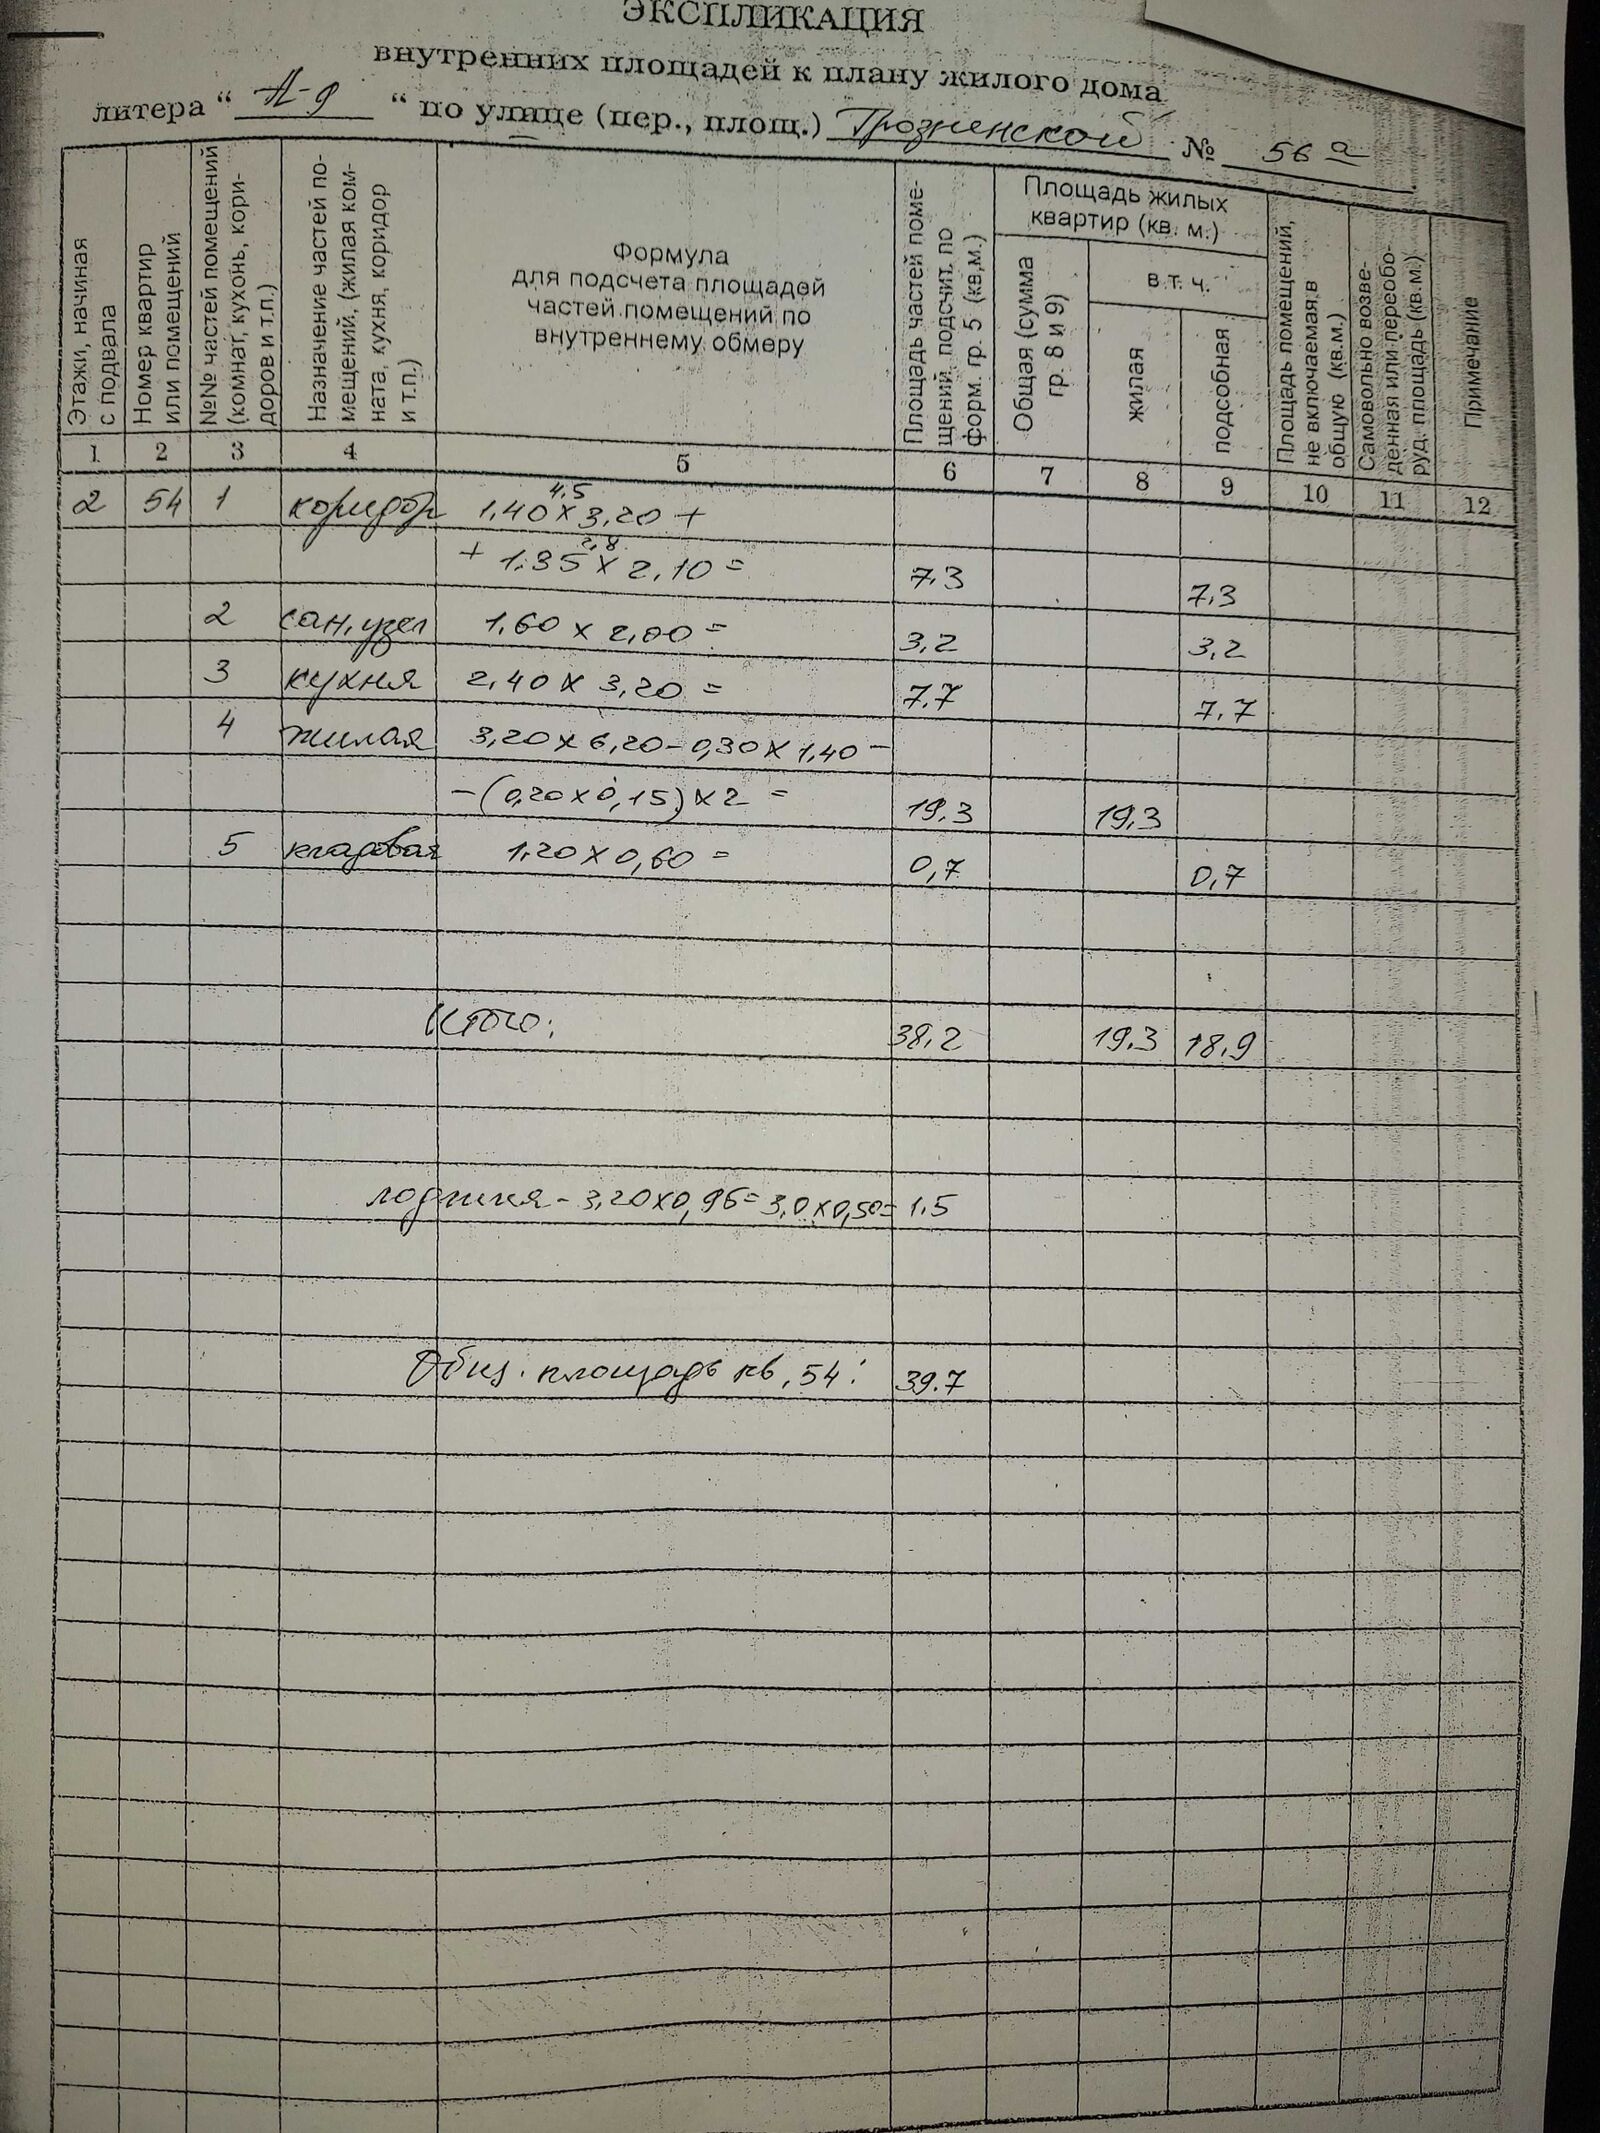 ЭКСПЛИКАЦИЯ
внутренних площадей к плану жилого дома
литера “ А-9 “ по улице (пер., площ.) Грозненской № 56 а
Этажи, начиная с подвала
Номер квартир или помещений
№№ частей помещений (комнат, кухонь, кори-доров и т.п.)
Назначение частей по-мещений, (жилая ком-ната, кухня, коридор и т.п.)
Формула
для подсчета площадей
частей помещений по
внутреннему обмеру
Площадь частей поме-щений, подсчит. по форм. гр. 5 (кв.м.)
Площадь жилых
квартир (кв. м.)
Общая (сумма гр. 8 и 9)
в т. ч.
жилая
подсобная
Площадь помещений, не включаемая в общую (кв.м.)
Самовольно возве-денная или переобо-руд. площадь (кв.м.)
Примечание
1 2 3 4 5 6 7 8 9 10 11 12
4,5
2 54 1 коридор 1,40 х 3,20 +
2,8
+ 1,35 х 2,10 = 7,3 7,3
2 сан.узел 1,60 х 2,00 = 3,2 3,2
3 кухня 2,40 х 3,20 = 7,7 7,7
4 жилая 3,20 х 6,20 - 0,30 х 1,40 -
- (0,20 х 0,15) х 2 = 19,3 19,3
5 кладовая 1,20 х 0,60 = 0,7 0,7
Итого: 38,2 19,3 18,9
лоджия - 3,20х0,95= 3,0х0,50= 1,5
Общ. площадь кв, 54: 39,7